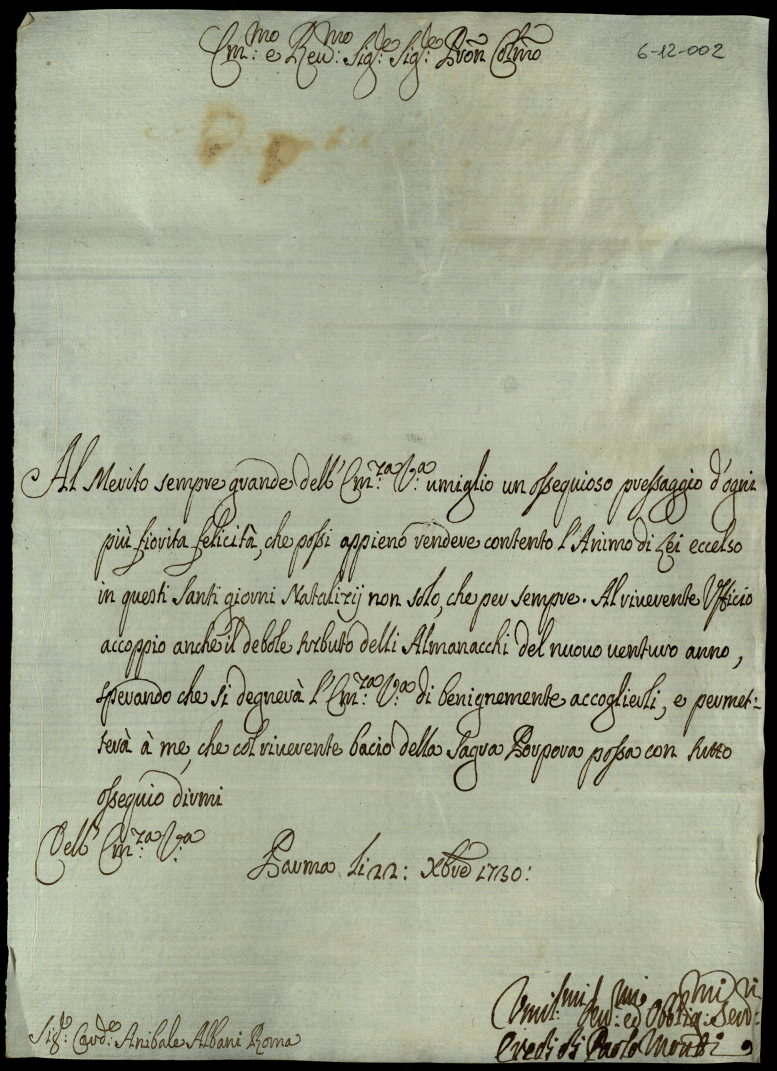 Em:mo e Rev:mo Sig:e Sig:e Pron Colmo
6-12-002
Al Merito sempre grande dell' Em:za V:a umiglio un ossequioso pressaggio d'ogni
più fiorita felicità, che possi appieno rendere contento l'Animo di Lei eccelso
in questi Santi giorni Natalizij non solo, che per sempre. Al riverente Ufficio
accoppio anche il debole tributo delli Almanacchi del nuovo venturo anno,
sperando che si degnerà l'Em:za V:a di benignemente accoglierli, e permet:-
terà à me, che col riverente bacio della Sagra Porpora possa con tutto
ossequio dirmi
Dell' Em:za V:a
Parma li 22: Xbre 1730:
Umil:mi Dev:mi ed Obblig:mi Serv:ri
Eredi di Paolo Monti
Sig:e Card:e Anibale Albani Roma